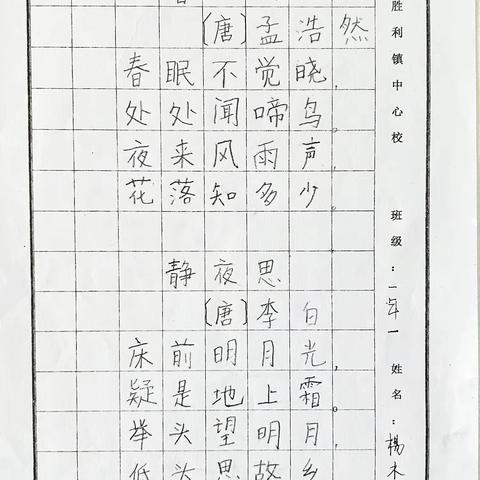 〔唐〕孟浩然
春眠不觉晓，
处处闻啼鸟。
夜来风雨声，
花落知多少。
静夜思
〔唐〕李白
床前明月光，
疑是地上霜。
举头望明月，
低头思故乡
胜利镇中心校 班级：一年一 姓名：杨木